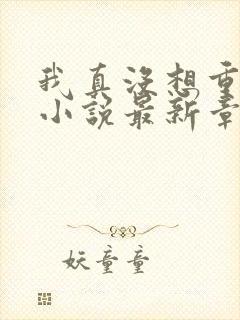 我真没想重
小说最新章
妖童童